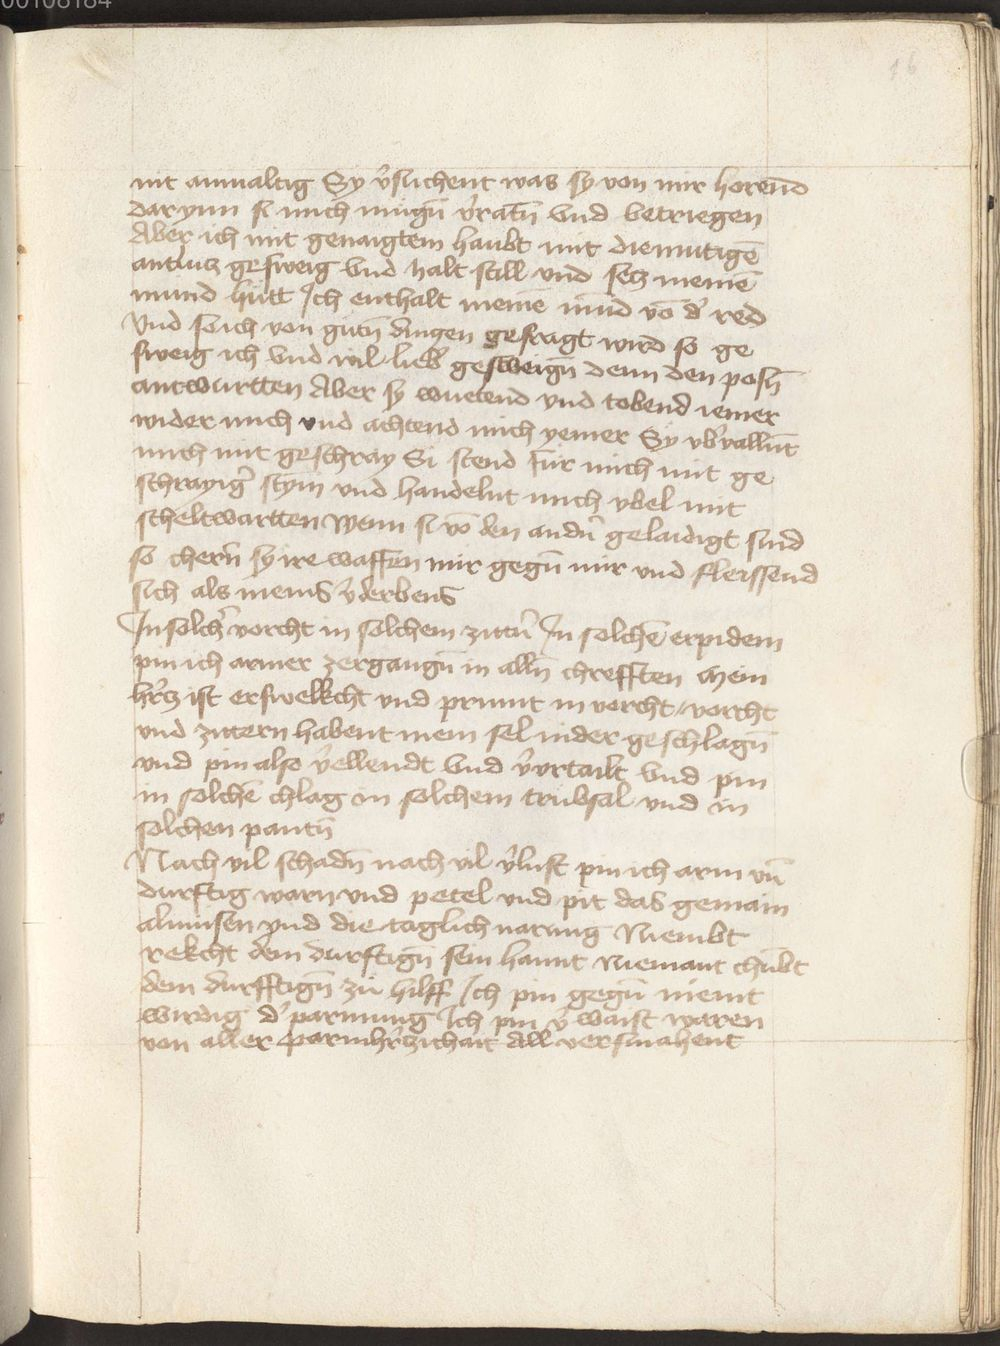 00108184
16
nit anualtig Sy v̉suchent was sy von mir horend̄
dar ynn si mich mugn̄ v̉ratn̄ vnd betriegen
Aber ich mit genaigtem haubt mit diemutigē
antlutz gesweig vnd halt still vnd secz meinē
mund hutt Ich enthalt meinē mūd vō d̉ red
Vnd so ich von gutn̄ dingen gefragt wird so ge
sweig ich vnd wil lieb̉ gesweign̄ denn den posn̄
antwurtten Aber sy wuetend vnd tobend iemer
wider mich vnd achtend mich yemer Sy vb̉vallnt̄
mich mit geschray Si stend fur mich mit ge
schrayig̉ stym vnd handelnt mich vbel mit
scheltwartten Wenn si vō den andn̉ gelaidigt sind
so chern̄ sy ire waffen mir gegn̄ mir vnd fleissend
sich als meins v̉derbens
In solch̉ vorcht in solchem zittn̉ In solchē erpidem
pin ich armer zergangn̄ in alln̄ chrefften Mein
h̉cz ist erswelkcht vnd prinnt in vorcht / vorcht
vnd zittern habent mein sel nider geschlagn̄
vnd pin also v̉ellendt vnd v̉vrtailt vnd pin
in solchē chlag in solchem trubsal vnd in
solchen pantn̄
Nach vil schadn̄ nach vil v̉lust pin ich arm vn̄
durftig warn vnd petel vnd pit das gemain
almusen vnd die taglich narung Niembt
rekcht dem durftign̄ sein hannt Niemant chūbt
dem durfftign̄ zu hilff Ich pin gegn̄ niemt
wirdig d̉ parmung Ich pin v̉ waist waren
von aller parmh̉czichait All versmahent